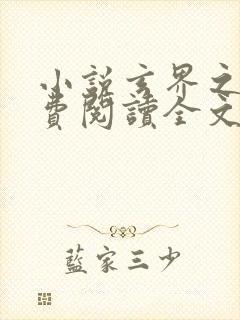 小說玄界之
費閱讀全文
藍家三少